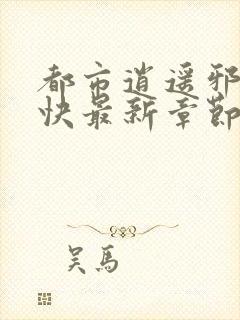 都市逍遥邪
快最新章节
吴马